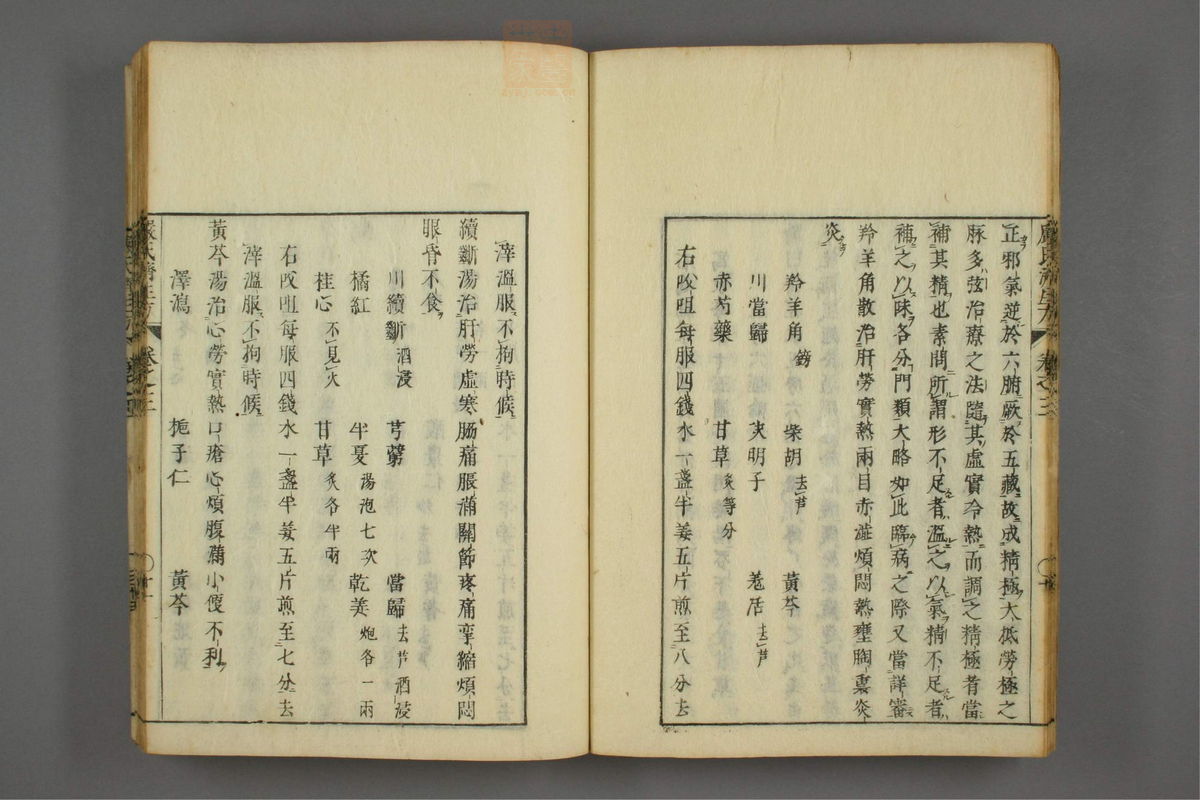 正邪氣逆於六腑厥於五藏故成精極大抵勞極之
脉多弦治療之法隨其虛實冷熱而調之精極者當
補其精也素問所謂形不足者溫之以氣精不足者
補之以味各分門類大略如此臨病之際又當詳審
羚羊角散治肝勞實熱兩目赤澁煩悶熱壅胸裏炎
炎
羚羊角 鎊 柴胡 去芦 黃芩
川當歸 决明子 羗活 去芦
赤芍藥 甘草 炙等分
右㕮咀每服四錢水一盞半姜五片煎至八分去
滓溫服不拘時候
續斷湯治肝勞虛寒肠痛脹滿關節疼痛攣縮煩悶
眼昏不食
川續斷 酒浸 芎藭 當歸 去芦酒浸
橘紅 半夏 湯泡七次 乾姜 炮各一兩
桂心 不見火 甘草 炙各半兩
右㕮咀每服四錢水一盞半姜五片煎至七分去
滓溫服不拘時候
黃芩湯治心勞實熱口瘡心煩腹滿小便不利
澤瀉 梔子仁 黃芩
嚴氏濟生方 卷之三